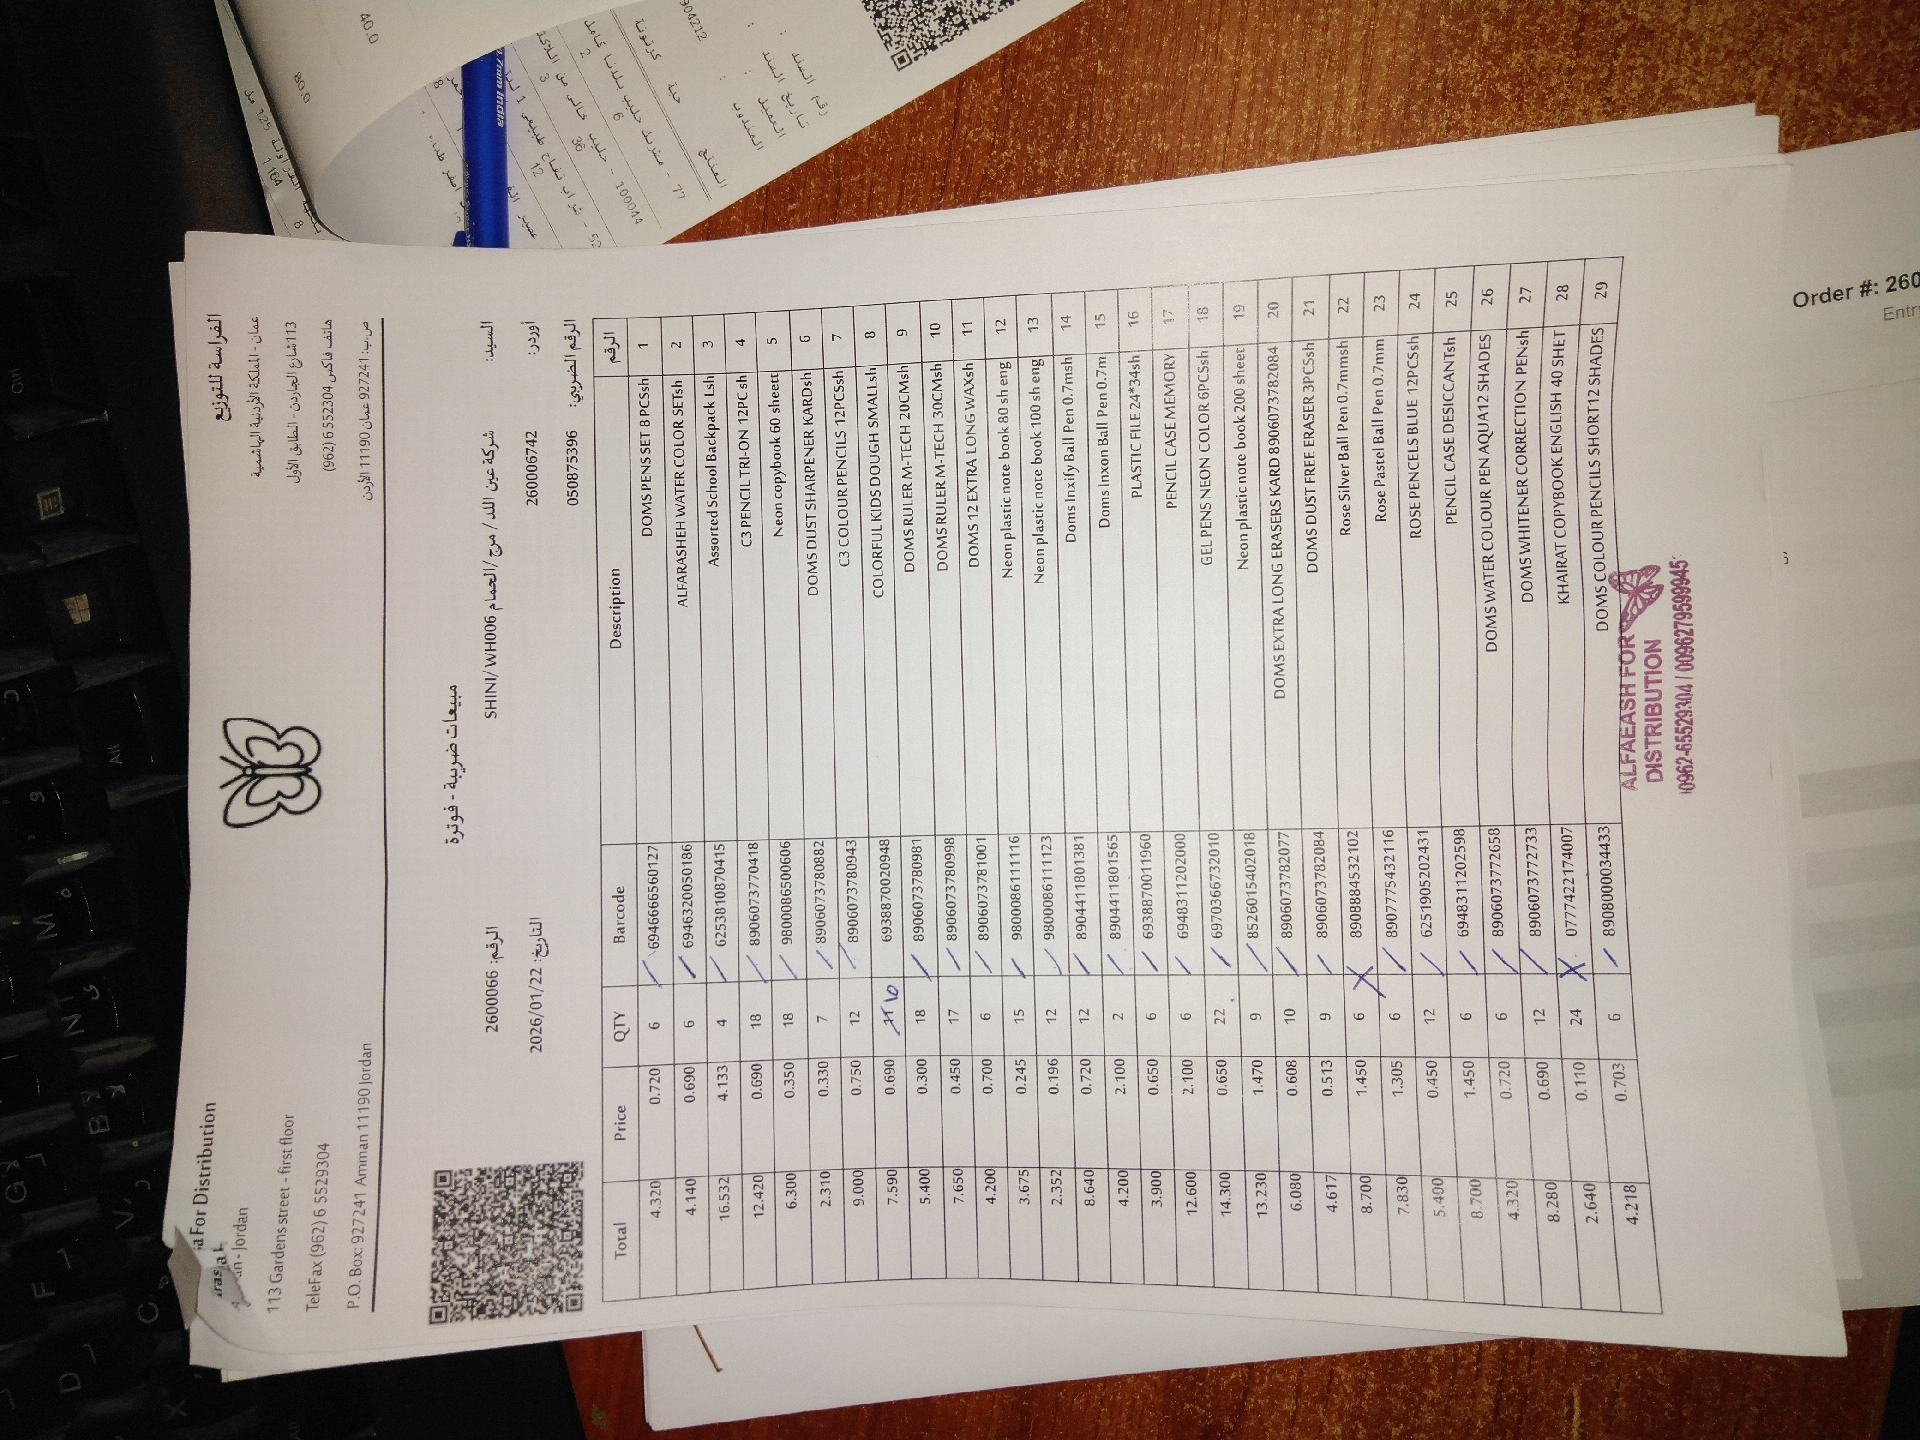 الفراسة للتوزيع
عمان - المملكة الأردنية الهاشمية
113 شارع الجاردن - الطابق الأول
هاتف فاكس 6552304 6 (962)
ص.ب: 927241 عمان 11190 الأردن
a For Distribution
an - Jordan
113 Gardens street - first floor
TeleFax (962) 6 5529304
P.O. Box: 927241 Amman 11190 Jordan
مبيعات ضريبة - فوترة
السيد: شركة عين اللد / مرج / الحمام SHINI/ WH006
الرقم: 2600066
أوردر: 26006742
التاريخ: 2026/01/22
الرقم الضريبي: 050875396
Total Price QTY Barcode Description الرقم
4.320 0.720 6 6946666560127 DOMS PENS SET 8 PCSsh 1
4.140 0.690 6 6946320050186 ALFARASHEH WATER COLOR SETsh 2
16.532 4.133 4 6253810870415 Assorted School Backpack Lsh 3
12.420 0.690 18 8906073770418 C3 PENCIL TRI-ON 12PC sh 4
6.300 0.350 18 9800086500606 Neon copybook 60 sheett 5
2.310 0.330 7 8906073780882 DOMS DUST SHARPENER KARDsh 6
9.000 0.750 12 8906073780943 C3 COLOUR PENCILS 12PCSsh 7
7.590 0.690 10 6938870020948 COLORFUL KIDS DOUGH SMALLsh 8
5.400 0.300 18 8906073780981 DOMS RULER M-TECH 20CMsh 9
7.650 0.450 17 8906073780998 DOMS RULER M-TECH 30CMsh 10
4.200 0.700 6 8906073781001 DOMS 12 EXTRA LONG WAXsh 11
3.675 0.245 15 9800086111116 Neon plastic note book 80 sh eng 12
2.352 0.196 12 9800086111123 Neon plastic note book 100 sh eng 13
8.640 0.720 12 8904411801381 Doms Inxify Ball Pen 0.7msh 14
4.200 2.100 2 8904411801565 Doms Inxon Ball Pen 0.7m 15
3.900 0.650 6 6938870011960 PLASTIC FILE 24*34sh 16
12.600 2.100 6 6948311202000 PENCIL CASE MEMORY 17
14.300 0.650 22 6970366732010 GEL PENS NEON COLOR 6PCSsh 18
13.230 1.470 9 8526015402018 Neon plastic note book 200 sheet 19
6.080 0.608 10 8906073782077 DOMS EXTRA LONG ERASERS KARD 8906073782084 20
4.617 0.513 9 8906073782084 DOMS DUST FREE ERASER 3PCSsh 21
8.700 1.450 6 8908884532102 Rose Silver Ball Pen 0.7mmsh 22
7.830 1.305 6 8907775432116 Rose Pastel Ball Pen 0.7mm 23
5.400 0.450 12 6251905202431 ROSE PENCELS BLUE 12PCSsh 24
8.700 1.450 6 6948311202598 PENCIL CASE DESICCANTsh 25
4.320 0.720 6 8906073772658 DOMS WATER COLOUR PEN AQUA12 SHADES 26
8.280 0.690 12 8906073772733 DOMS WHITENER CORRECTION PENsh 27
2.640 0.110 24 0777422174007 KHAIRAT COPYBOOK ENGLISH 40 SHET 28
4.218 0.703 6 8908000034433 DOMS COLOUR PENCILS SHORT12 SHADES 29
ALFAEASH FOR
DISTRIBUTION
0962-65529304 / 0096279599945
Order #: 260
Entry
رقم السند :
تاريخ السند :
العميل :
المندوب :
904212
المنتج حبة كرتونة
7mm India
80.0
40.0
Alt